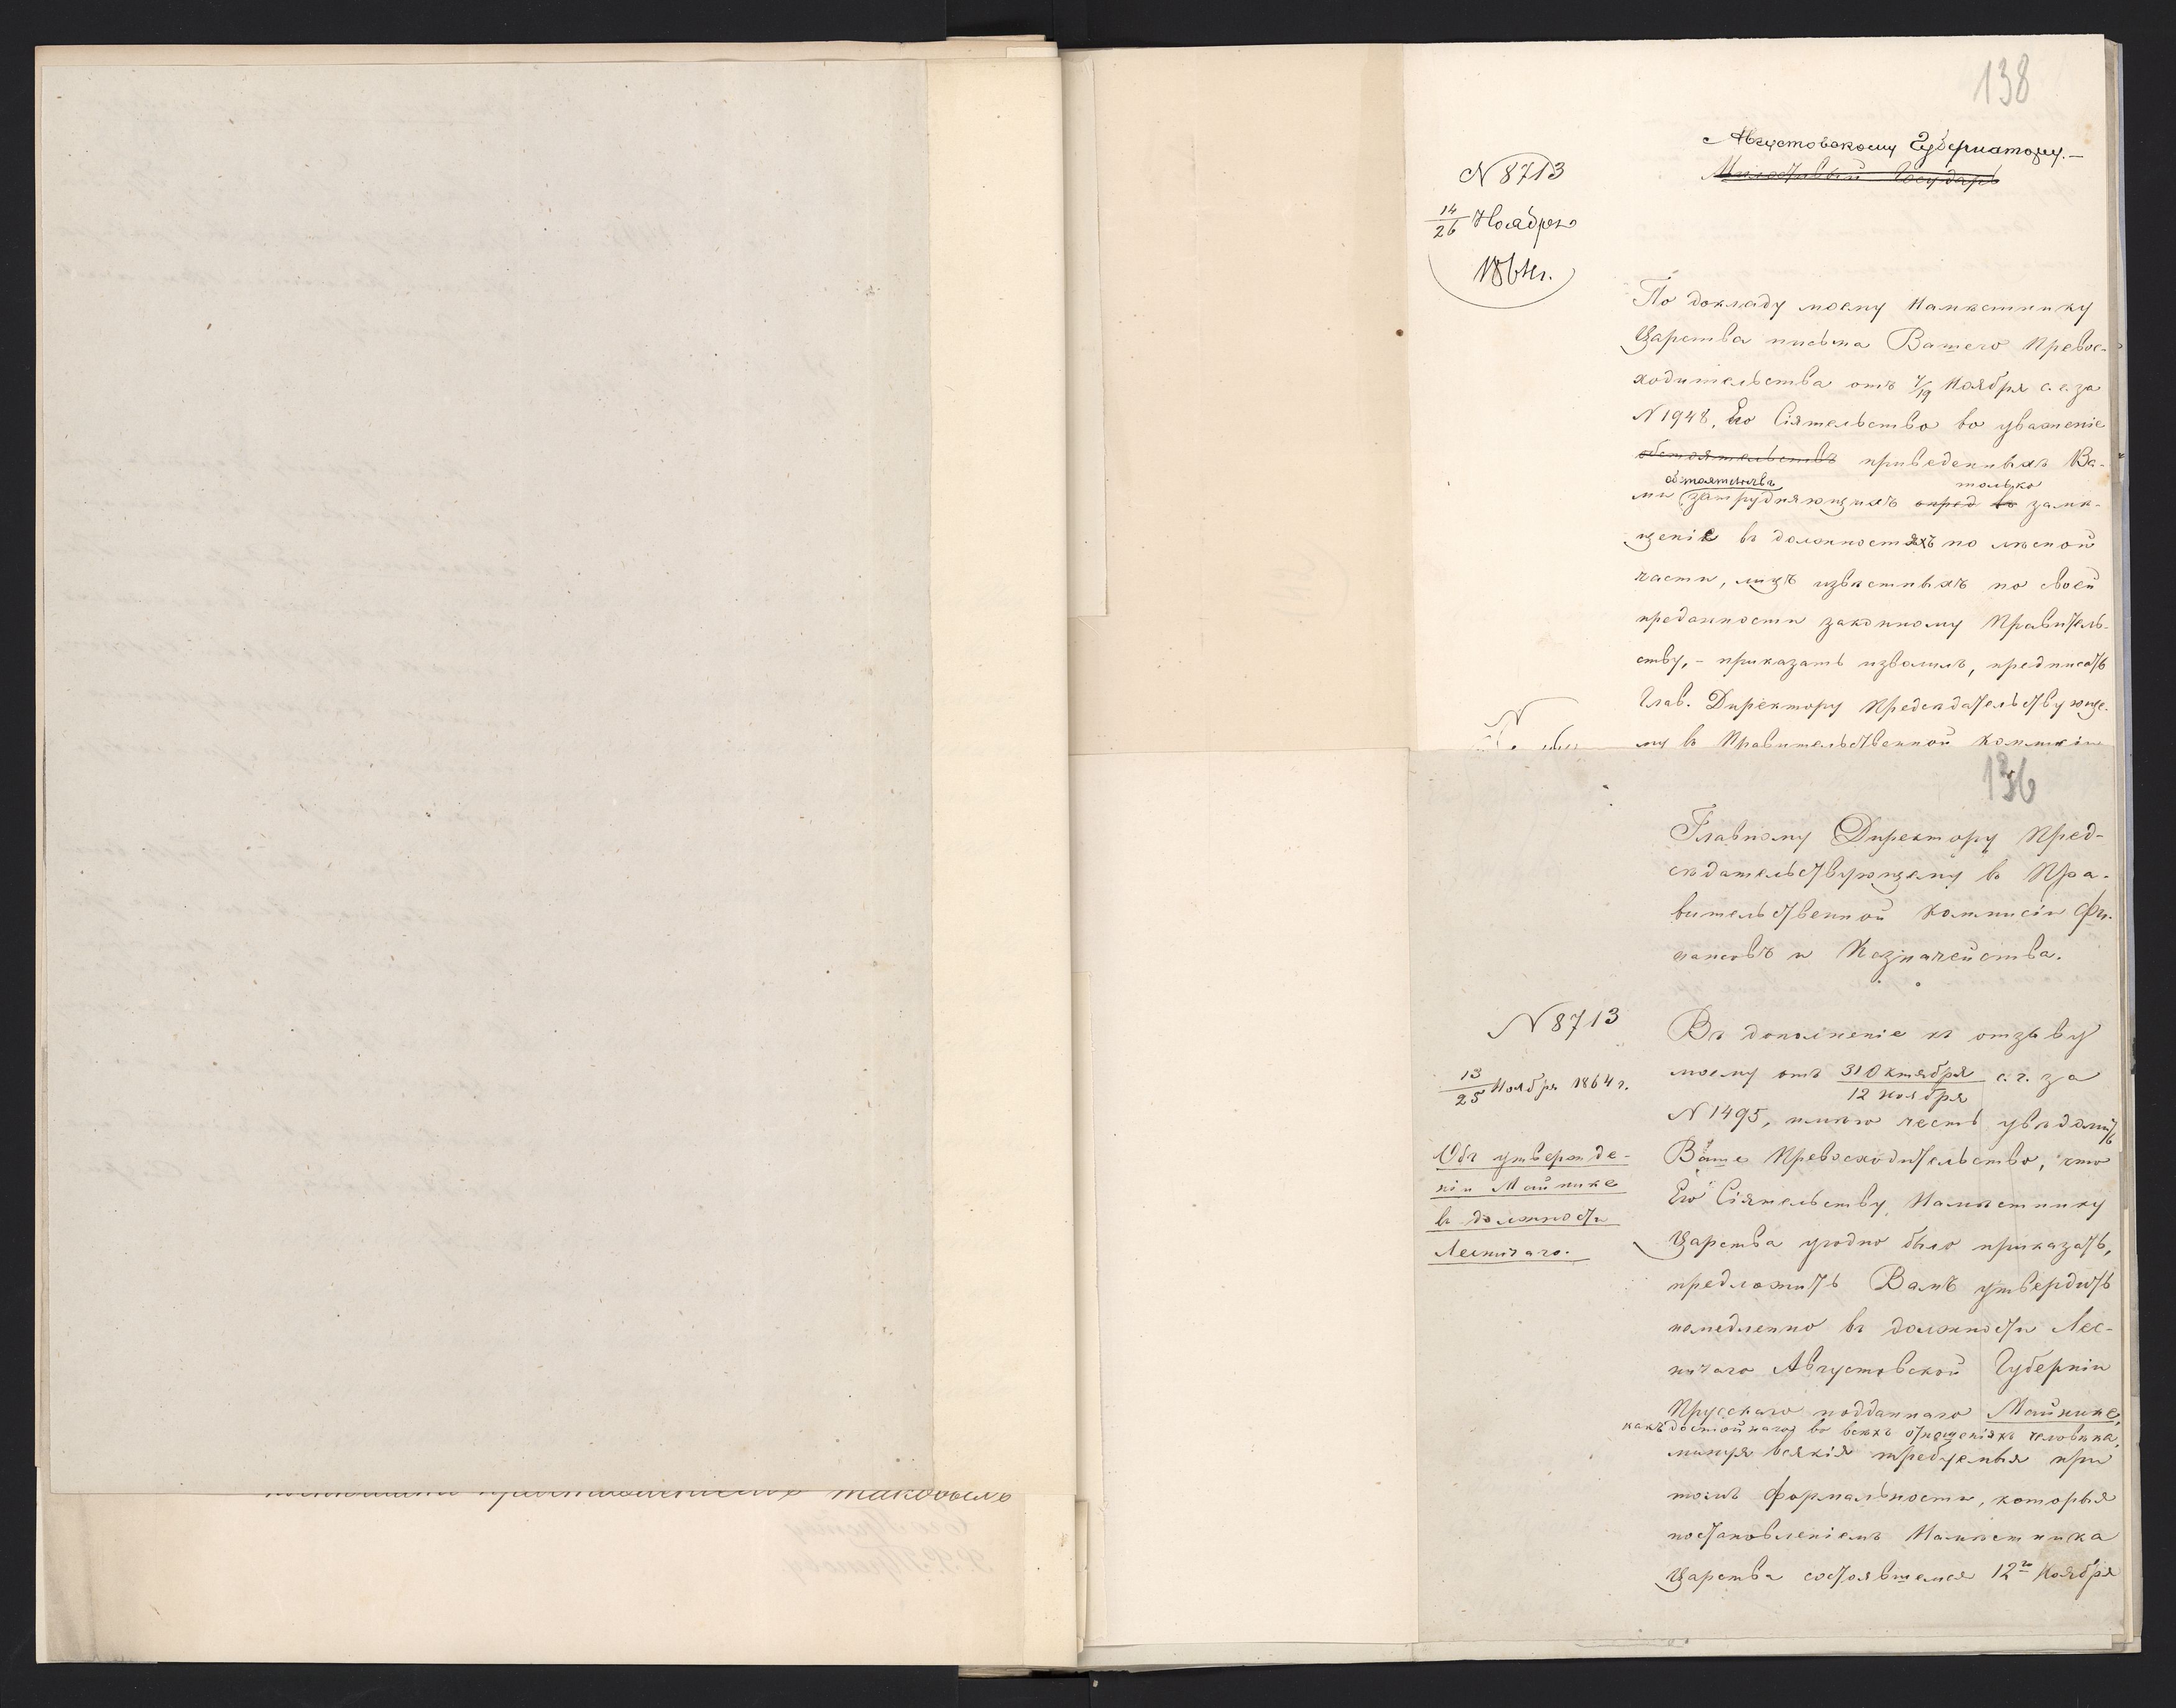 138
Августовскому Губернатору.—
Милостивый Государь
N 8713
14/26 Ноября
1864 г.
По докладу моему Намѣстнику
Царства письма Вашего Превос-
ходительства отъ 7/19 Ноября с. г. за
N 1948, Его Сіятельство во уваженіе
обстоятельствъ приведенныхъ Ва-
обстоятельствъ только
ми затрудняющихъ опред въ замѣ-
щеніе въ должностяхъ по лѣсной
части, лицъ извѣстныхъ по своей
преданности законному Правитель-
ству, - приказать изволилъ, предписать
Глав. Директору Предсѣдательствующе-
му въ Правительственной Коммисіи
N
136
Главному Директору Пред-
сѣдательствующему въ Пра-
вительственной Коммисіи Фи-
нансовъ и Казначейства.
N 8713
13/25 Ноября 1864 г.
Объ утвержде-
ніи Майнике
въ должности
Лесничаго.
Въ дополненіе къ отзыву
моему отъ 31 Октября/12 Ноября с. г. за
N 1495, имѣю честь увѣдомить
Ваше Превосходительство, что
Его Сіятельству Намѣстнику
Царства угодно было приказать,
предложить Вамъ утвердить
немедленно въ должности Лес-
ничаго Августовской Губерніи
Прусскаго подданнаго Майнике,
какъ достойнаго во всѣхъ отношеніяхъ человѣка,
минуя всякія требуемыя при
томъ формальности, которыя
постановленіемъ Намѣстника
Царства состоявшемся 12го Ноября
таковыхъ